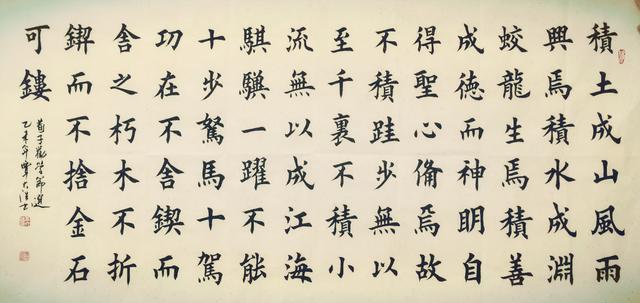 積土成山風雨
興焉積水成淵
蛟龍生焉積善
成徳而神明自
得聖心備焉故
不積跬步無以
至千裏不積小
流無以成江海
騏驥一躍不能
十步駑馬十駕
功在不舍鍥而
舍之朽木不折
鍥而不捨金石
可鏤
荀子勸学節選
年覃